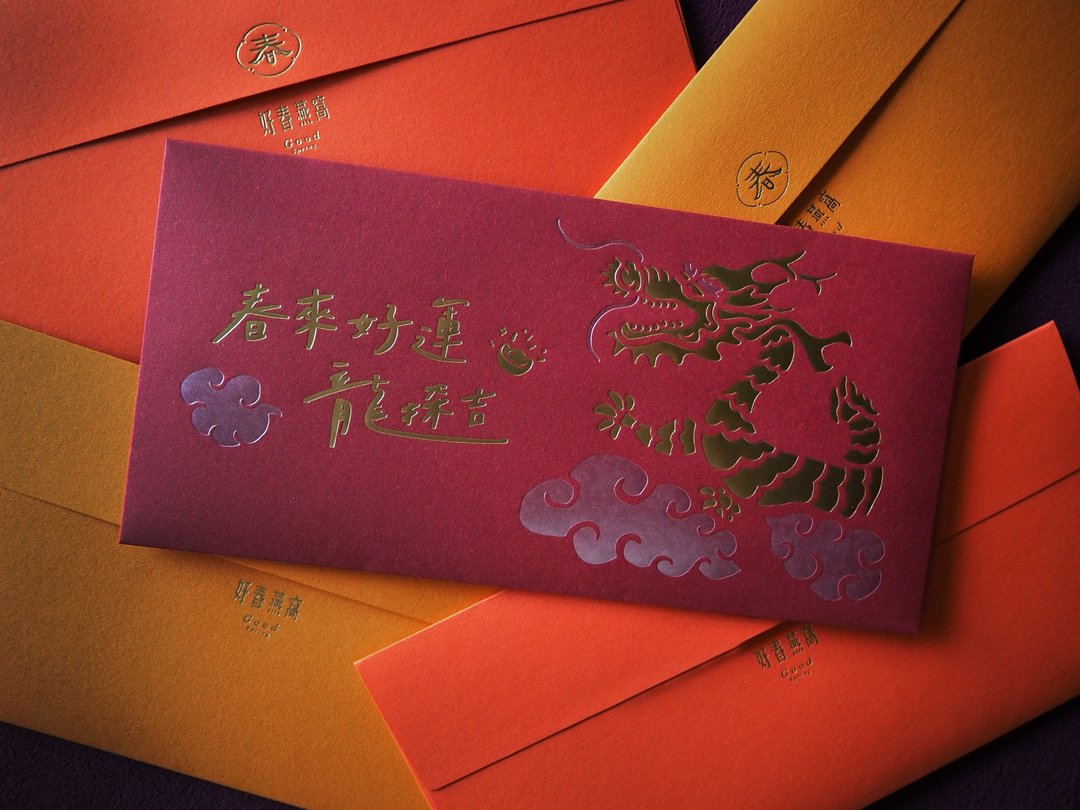 春
好春燕窩
Good
Spring
春
燕窩
春來好運
龍探吉
好春燕窩
Good
Spring
好春燕窩
Good
Spring